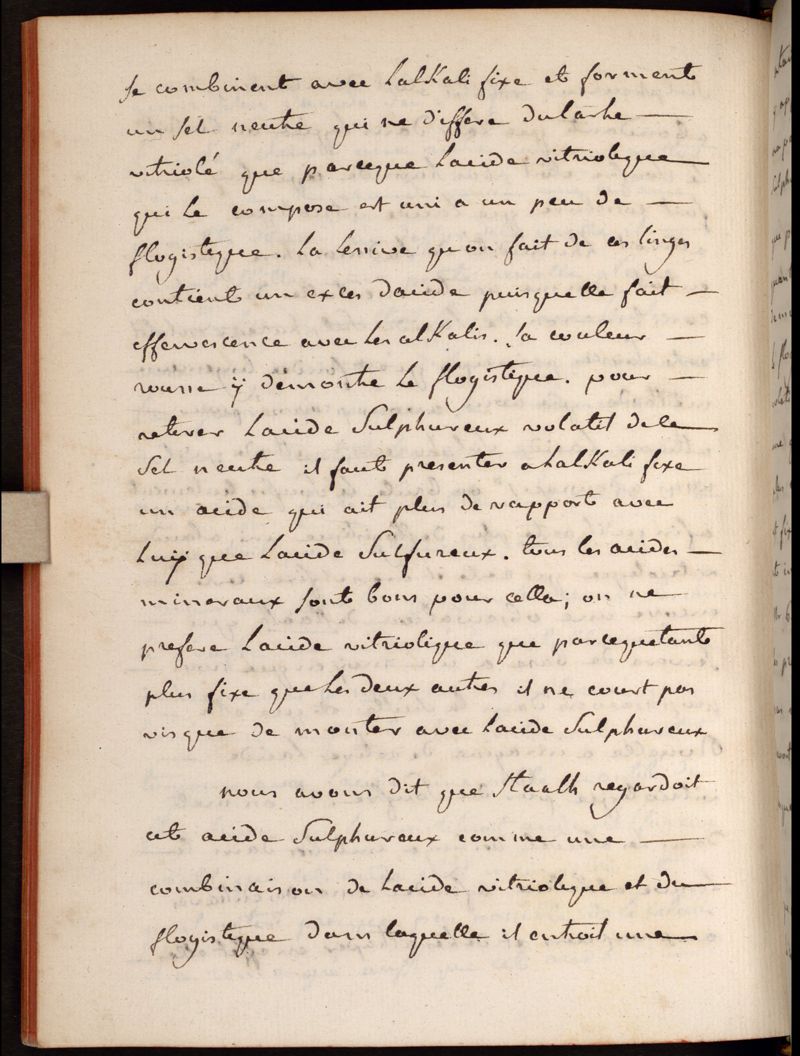 se combinent avec lalkali fixe et forment
un sel neutre qui ne differe du tartre —
vitriolé que parceque lacide vitriolique
qui le compose est uni a un peu de —
flogistique. la lessive quon fait de ces linges
contient un exces dacide puisquelle fait —
effervescence avec les alkalis. sa couleur —
rousse ÿ démontre le flogistique. pour —
retirer lacide Sulphureux volatil de le
Sel neutre il faut presenter a lalkali fixe
un acide qui ait plus de rapport avec
luÿ que lacide Sulfureux. tous les acides —
mineraux sont bons pour cella; on ne
prefere lacide vitriolique que parcequetant
plus fixe que les deux autres il ne court pas
risque de monter avec lacide Sulphureux
nous avons dit que Staalh regardoit
cet acide Sulphureux comme une —
combinaison de lacide vitriolique et du —
flogistique dans laquelle il entroit une —